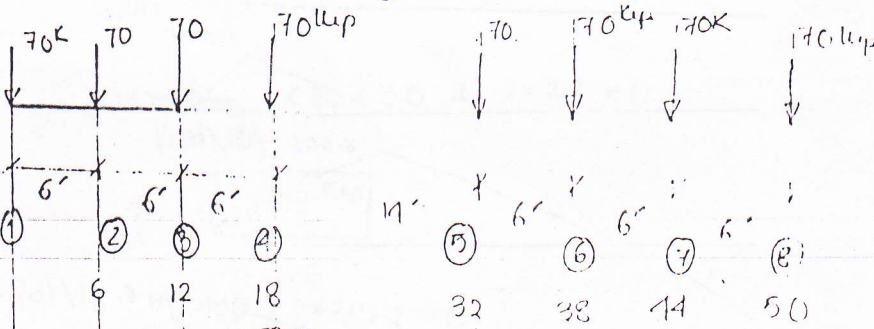 70K 70 70 70 Kip 70. 70 Kip 70K 70 Kip
6' 6' 6' 6' 6' 6'
1 2 3 4 5 6 7 8
6 12 18 32 38 44 50